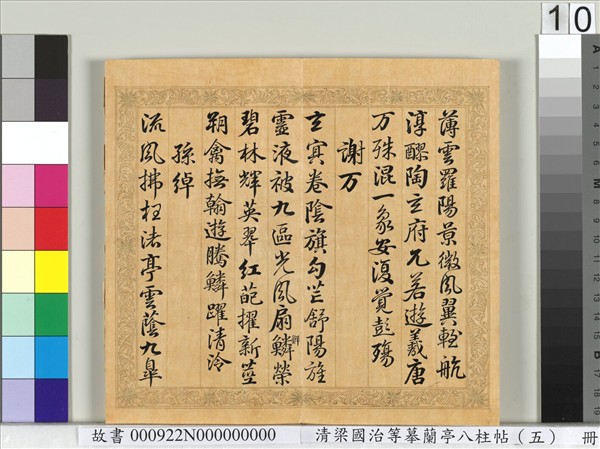 薄雲羅陽景微風翼軽航
淳醪陶玄府兀若遊羲唐
万殊混一象安復覺彭殤
謝万
玄冥卷陰旗勾芒舒陽旌
靈液被九區光風扇鱗榮
碧林輝英翠紅葩擢新莖
翔禽撫翰遊騰鱗躍清泠
孫綽
流風拂枉渚亭雲蔭九皐
10
A
1
2
3
4
5
6
M
8
9
10
11
12
13
14
15
B
17
18
19
故書 000922N000000000 清梁國治等摹蘭亭八柱帖（五） 冊